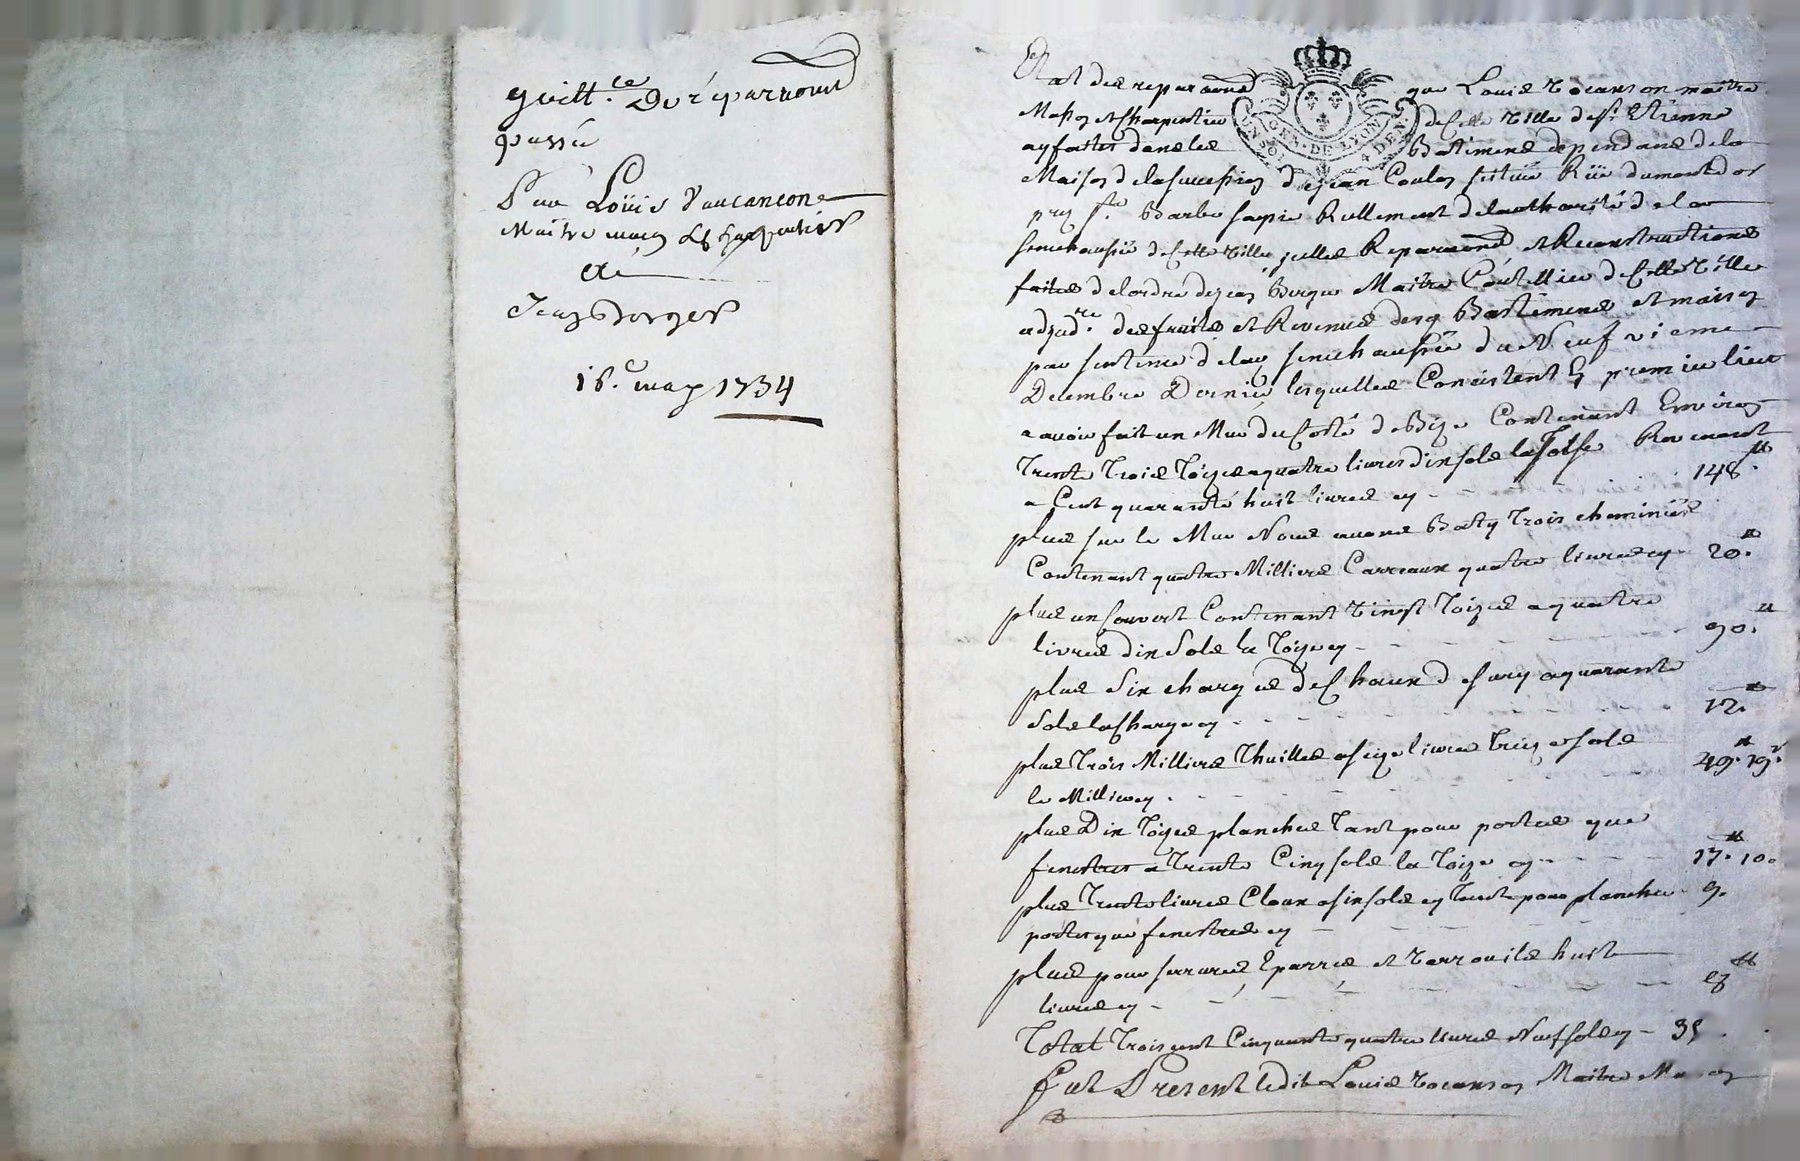 quitt.ce De réparaons
passée
Par Loüis Vaucançon
Maître maçon & charpentier
à
Jean Berger
16.e may 1734
Etat des reparaons que Louis Vocanson maitre
Masson et Charpentier de cette Ville de St Etienne
a faites dans les Batimens dependans de la
Maison de la succession de Jean Coulon scituée Rüe du mont d'or
pres Ste Barbe saysie Rellement de lauthorité de la
senechaussée de cette Ville, jcelles Reparaons et Reconstructions
faites de lordre de Jean Berger Maitre Coutellier de cette Ville
adjud.re des fruits et Revenus desd Bastimens et maison
par sentence de lad senechaussée du Neufvieme
Decembre Dernier lesquelles Consistent En premier lieu
a avoir fait un Mur du Costé de Bize Contenant Environ
Trente Trois Toizes a quatre livres dix sols la Toise Revenant
a Cent quarante huit livres cy - 148.#
plus sur le Mur Nous avons Baty Trois cheminées
Contenant quatre Milliers Carreaux quatre livres cy 20.#
plus un Couvert Contenant Vingt Toizes a quatre
livres dix Sols la Toize cy - 90.#
plus Six charges de Chaux de sury a quarante
Sols la Charge cy - 12.#
plus Trois Milliers Thuilles a seize livres Treize sols
le Millier cy - 49.# 19.s
plus Dix Toizes planches Tant pour portes que
fenestres a Trente Cinq sols la Toize cy - 17.# 10.
plus Trente livres Cloux a six sols cy Tant pour planche 9.
portes que fenestres cy
plus pour serrures Eparres et Verrouils huit
livres cy - 8#
Total Trois cent Cinquante quatre livres Neuf sols cy - 35
Fut Present ledit Louis Vocanson Maitre
GEN. DE LYON
UN SOL 4 DEN.